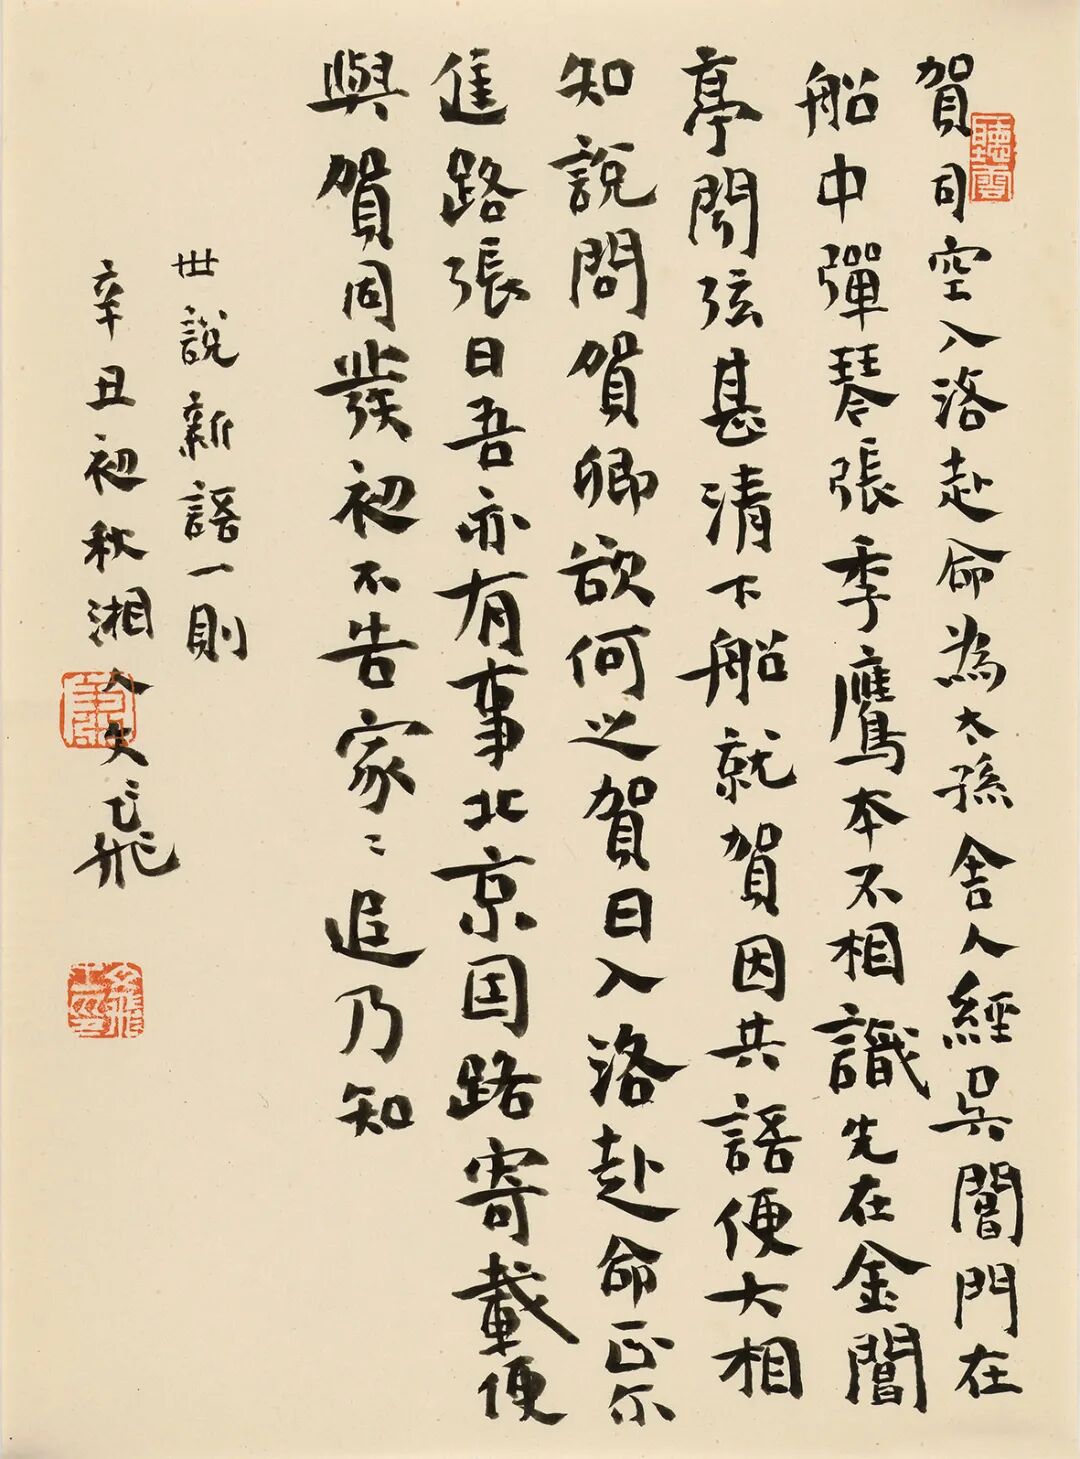 賀司空入洛赴命為太孫舍人經吳閶門在
船中彈琴張季鷹本不相識先在金閶
亭聞弦甚清下船就賀因共語便大相
知說問賀卿欲何之賀曰入洛赴命正尔
進路張曰吾亦有事北京因路寄載便
與賀同發初不告家〻追乃知
世說新語一則
辛丑初秋湘人文飛
聽雲